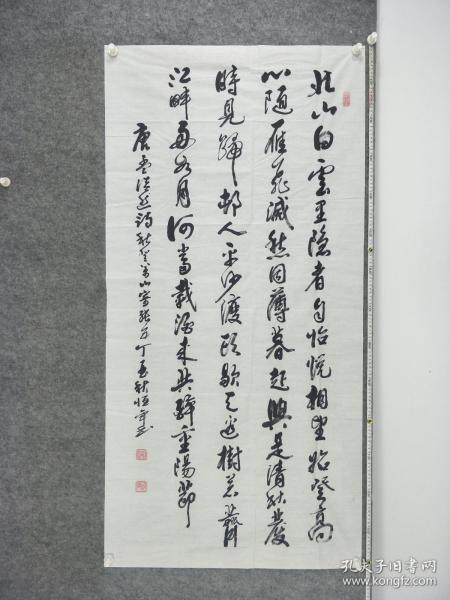 北山白雲里隐者自怡悦相望始登高
心随雁飛滅愁因薄暮起興是清秋發
時見歸邨人平沙渡头歇天邊樹若薺
江畔舟如月何當載酒来共醉重陽節
唐孟浩然詩秋登萬山寄張五丁酉秋恒
孔夫子旧书网
www.kongfz.com